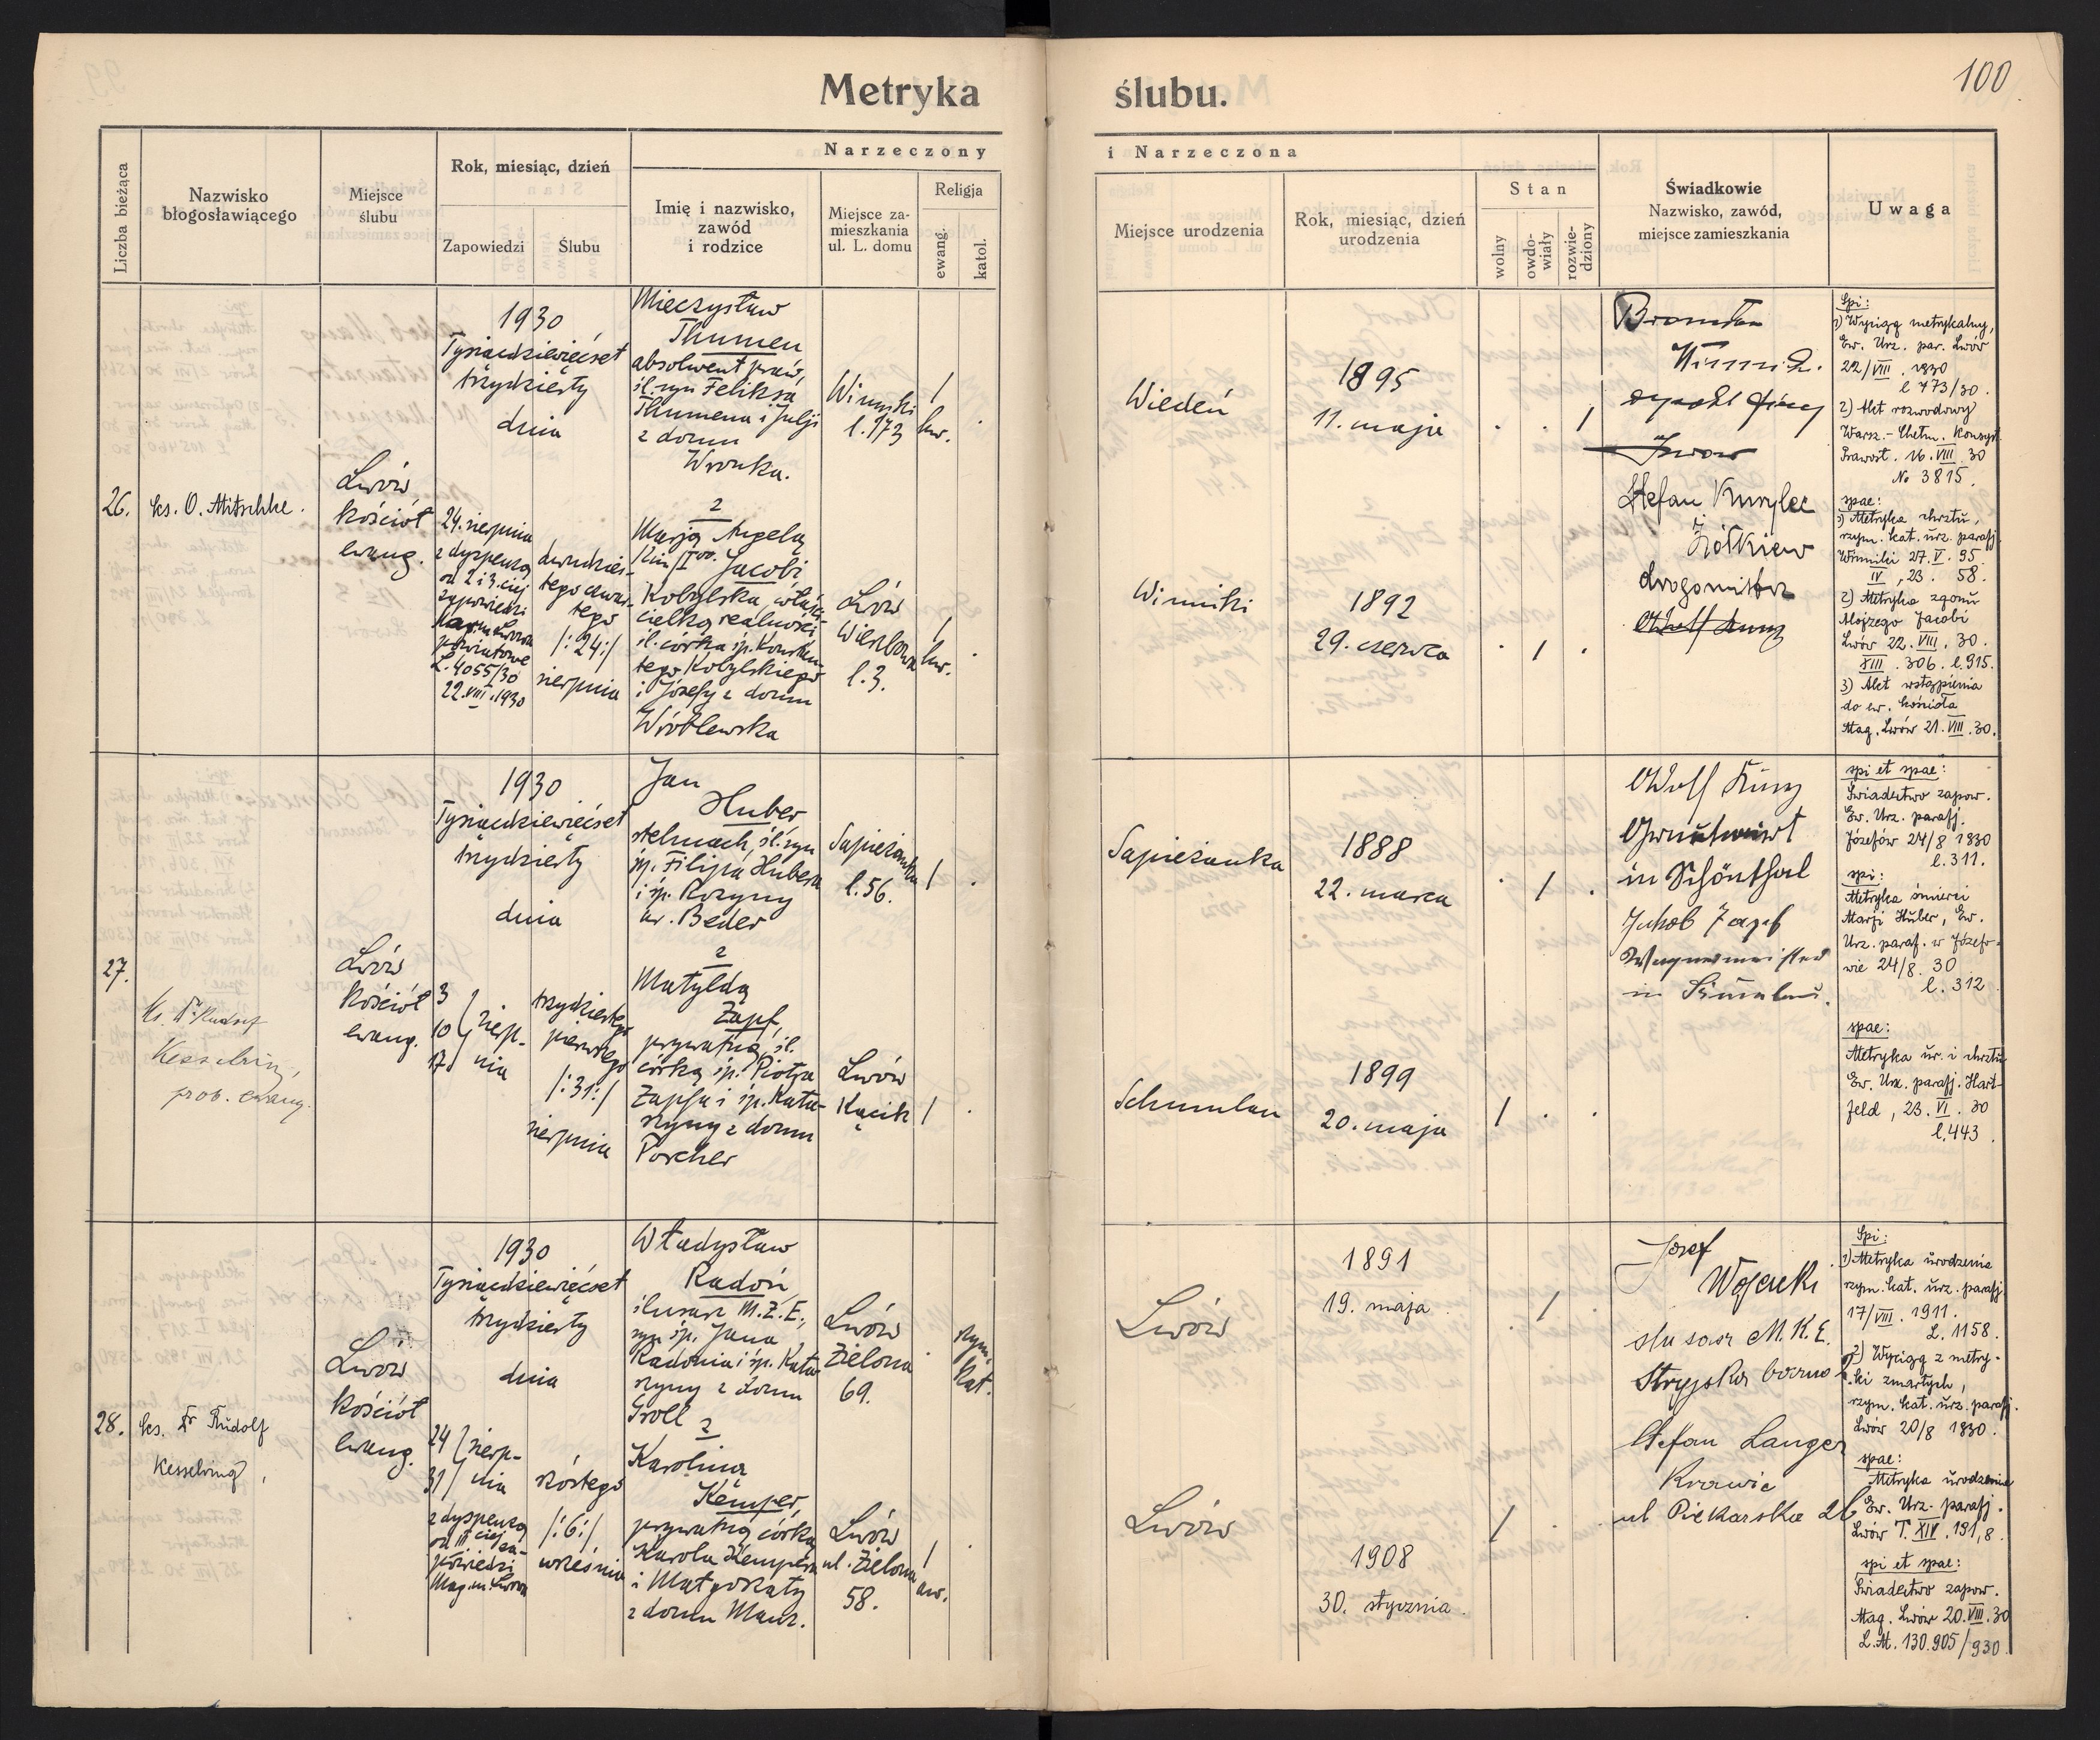 100
Metryka ślubu.
Liczba bieżąca
Nazwisko
błogosławiącego
Miejsce
ślubu
Rok, miesiąc, dzień
Zapowiedzi
Ślubu
Narzeczony
Imię i nazwisko,
zawód
i rodzice
Miejsce za-
mieszkania
ul. L. domu
Religja
ewang.
katol.
i Narzeczona
Miejsce urodzenia
Rok, miesiąc, dzień
urodzenia
Stan
wolny
owdo-
wiały
rozwie-
dziony
Świadkowie
Nazwisko, zawód,
miejsce zamieszkania
Uwaga
26.
ks. O. Mitschke.
Lwów
Kościół
ewang.
1930
Tysiącdziewięćset
trzydziesty
dnia
24. sierpnia
z dyspenzą
od 2 i 3. ciej
zapowiedzi
L. 4055/30
22.VIII.1930
dwudzies-
tego czwar-
tego
/:24:/
sierpnia
Mieczysław
Thumen
absolwent praw,
śl. syn Feliksa
Thumena i Julji
z domu
Wronka.
z
Marją Angelą
Jacobi
Kobylska, właści-
cielką realności
śl. córką śp. Konstan-
tego Kobylskiego
i Józefy z domu
Wróblewska
Winniki
l. 173
Lwów
l. 3.
/
hw.
/
hw.
Wiedeń
Winniki
1895
11. maja
1892
29. czerwca
. . /
. / .
Lwów
Stefan Kurylec
Żółkiew
drogomistrz
Spi:
1) Wyciąg metrykalny,
Ew. Urz. par. Lwów
22/VIII. 1930
l 773/30.
2) Akt rozwodowy
Warsz.-Chełm. Konsyst.
Prawosł. 16.VIII.30
No 3815.
spae:
1) Metryka chrztu,
rzym. kat. urz. parafj.
Winniki 27.V.95
IV, 23. 58.
2) Metryka zgonu
Alojzego Jacobi
Lwów 22.VIII.30.
XIII. 306. l. 915.
3) Akt wstąpienia
do ew. kościoła
Mag. Lwów 21.VIII.30.
27.
Ks. Dr Rudolf
Kesselring,
prob. ewang.
Lwów
Kościół
ewang.
1930
Tysiącdziewięćset
trzydziesty
dnia
3
10 sierp-
17 nia
trzydziestego
pierwszego
/:31:/
sierpnia
Jan
Huber
stelmach, śl. syn
śp. Filipa Hubera
i śp. Rozyny
ur. Beder
z
Matyldą
Zapf,
prywatną, śl.
córką śp. Piotra
Zapfa i śp. Kata-
rzyny z domu
Porcher
Sapieżanka
l. 56.
Lwów
Kącik
/ .
/ .
Sapieżanka
Schumlau
1888
22. marca
1899
20. maja
. / .
/ . .
Adolf Kunz
Grundwirt
in Schönthal
Jakob Zapf
Wagnermeister
in
spi et spae:
Świadectwo zapow.
Ew. Urz. parafj.
Józefów 24/8 1930
l. 311.
spi:
Metryka śmierci
Marji Huber, Ew.
Urz. paraf. w Józefo-
wie 24/8. 30
l. 312
spae:
Metryka ur. i chrztu
Ew. Urz. parafj. Hart-
feld, 23.VI.30
l. 443.
28.
ks. Dr Rudolf
Kesselring,
Lwów
Kościół
ewang.
1930
Tysiącdziewięćset
trzydziesty
dnia
24 sierp-
31 nia
z dyspenzą
od III ciej za-
powiedzi
Mag. m. Lwowa
szóstego
/:6:/
września
Władysław
Radoń,
ślusarz M.Z.E.,
syn śp. Jana
Radonia i śp. Kata-
rzyny z domu
Groll
z
Karoliną
Kemper,
prywatną córką
Karola Kempera
i Małgorzaty
z domu Manz.
Lwów
Zielona
69.
Lwów
ul. Zielona
58.
rzym.
kat.
/
aw.
Lwów
Lwów
1891
19. maja
1908
30. stycznia.
. / .
/ . .
Jozef
Wojcicki
slusarz M.K.E.
Stryjska boczna
Stefan Langer
Krawiec
ul Piekarska 26
Spi:
1) Metryka urodzenia
rzym. kat. urz. parafj.
17/VIII. 1911.
L. 1158.
2) Wyciąg z metry-
ki zmarłych,
rzym. kat. urz. parafj.
Lwów 20/8 1930.
spae:
Metryka urodzenia
Ew. Urz. parafj.
Lwów T. XIV. 191,8.
spi et spae:
Świadectwo zapow.
Mag. Lwów 20.VIII.30
L.M. 130.905/930.